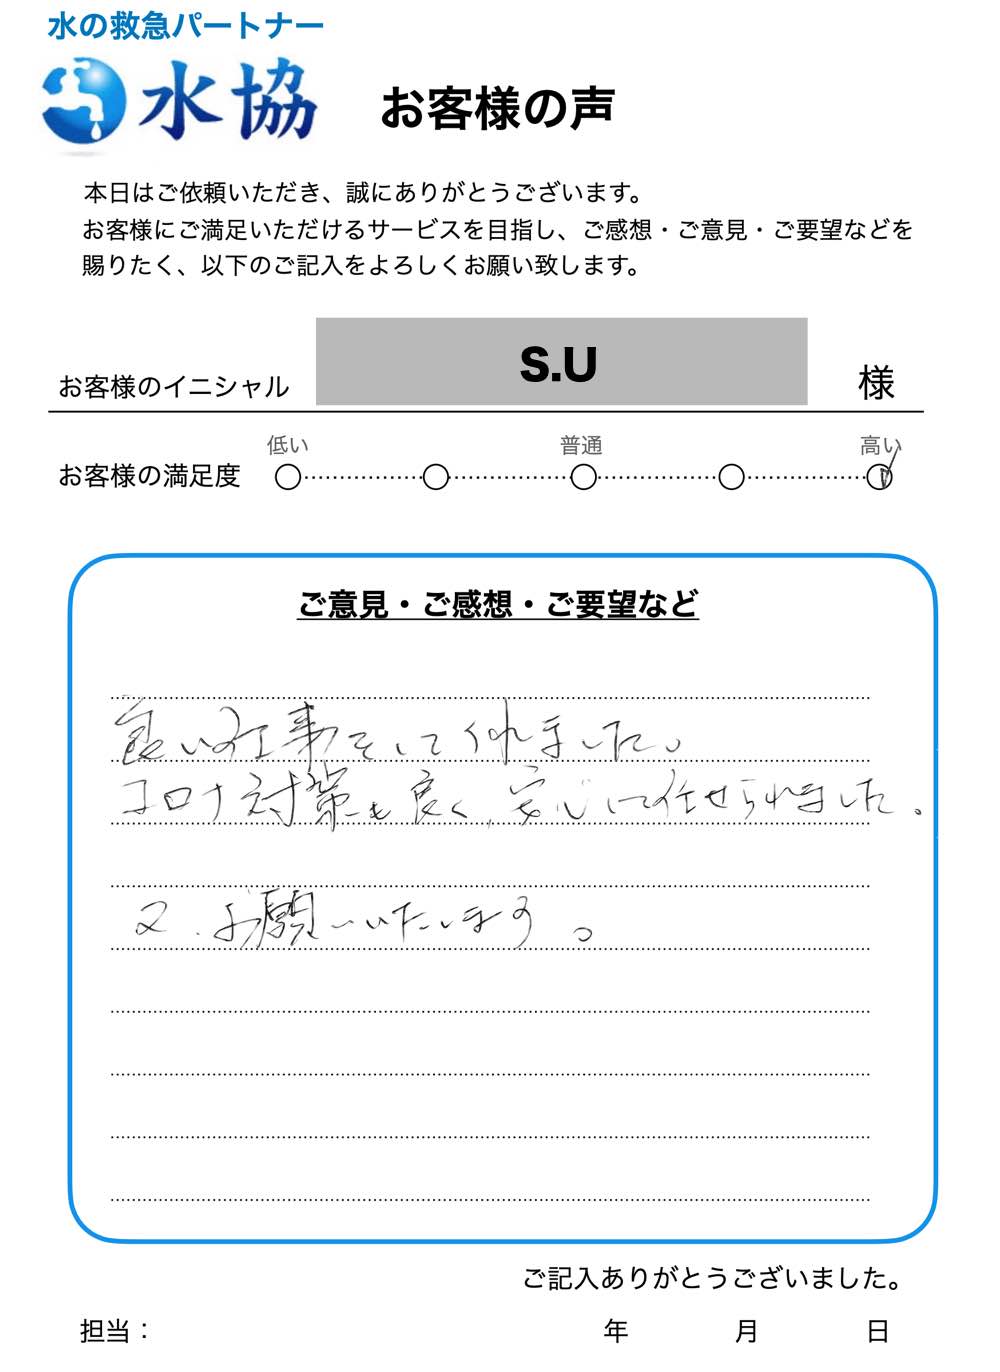 水の救急パートナー
水協
お客様の声
本日はご依頼いただき、誠にありがとうございます。
お客様にご満足いただけるサービスを目指し、ご感想・ご意見・ご要望などを
賜りたく、以下のご記入をよろしくお願い致します。
お客様のイニシャル S.U 様
低い 普通 高い
お客様の満足度
ご意見・ご感想・ご要望など
良い工事をして くれました。
コロナ対策も良く、安心して任せられました。
又、お願いいたします。
ご記入ありがとうございました。
担当： 年 月 日